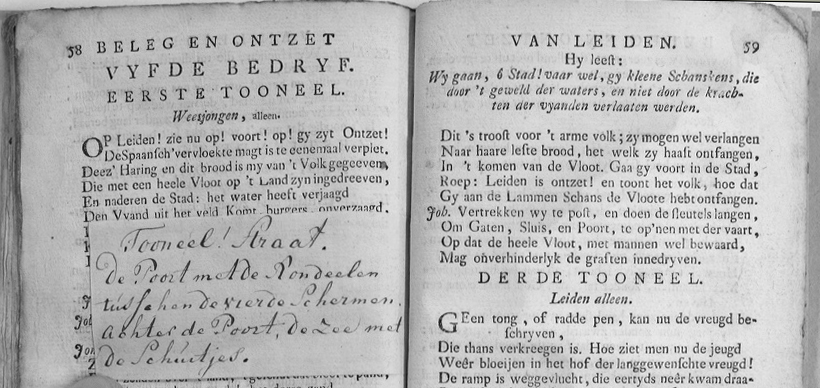 58 BELEG EN ONTZET
VYFDE BEDRYF.
EERSTE TOONEEL.
Weesjongen, alleen.
OP Leiden! zie nu op! voort! op! gy zyt Ontzet!
De Spaansch' vervloekte magt is te eenemaal verplet.
Deez' Haring en dit brood is my van 't Volk gegeeven,
Die met een heele Vloot op 't Land zyn ingedreeven,
En naderen de Stad: het water heeft verjaagd
Den Vyand uit het veld Komt burgers onverzaagd.
Tooneel! Straat.
de Poort met de Rondeelen
tusschen de vierde Schermen.
achter de Poort, de zee met
de Schuitjes.
VAN LEIDEN. 59
Hy leest:
Wy gaan, ô Stad! vaar wel, gy kleene Schanskens, die
door 't geweld der waters, en niet door de krach-
ten der vyanden verlaaten werden.
Dit 's troost voor 't arme volk; zy mogen wel verlangen
Naar haare leste brood, het welk zy haast ontfangen,
In 't komen van de Vloot. Gaa gy voort in de Stad,
Roep: Leiden is ontzet! en toont het volk, hoe dat
Gy aan de Lammen Schans de Vloote hebt ontfangen.
Job. Vertrekken wy te post, en doen de sleutels langen,
Om Gaten, Sluis, en Poort, te op'nen met der vaart,
Op dat de heele Vloot, met mannen wel bewaard,
Mag onverhinderlyk de graften innedryven.
DERDE TOONEEL.
Leiden alleen.
GEen tong, of radde pen, kan nu de vreugd be-
schryven,
Die thans verkreegen is. Hoe ziet men nu de jeugd
Weêr bloeijen in het hof der langgewenschte vreugd!
De ramp is weggevlucht, die eertyds neêr kwam draa-